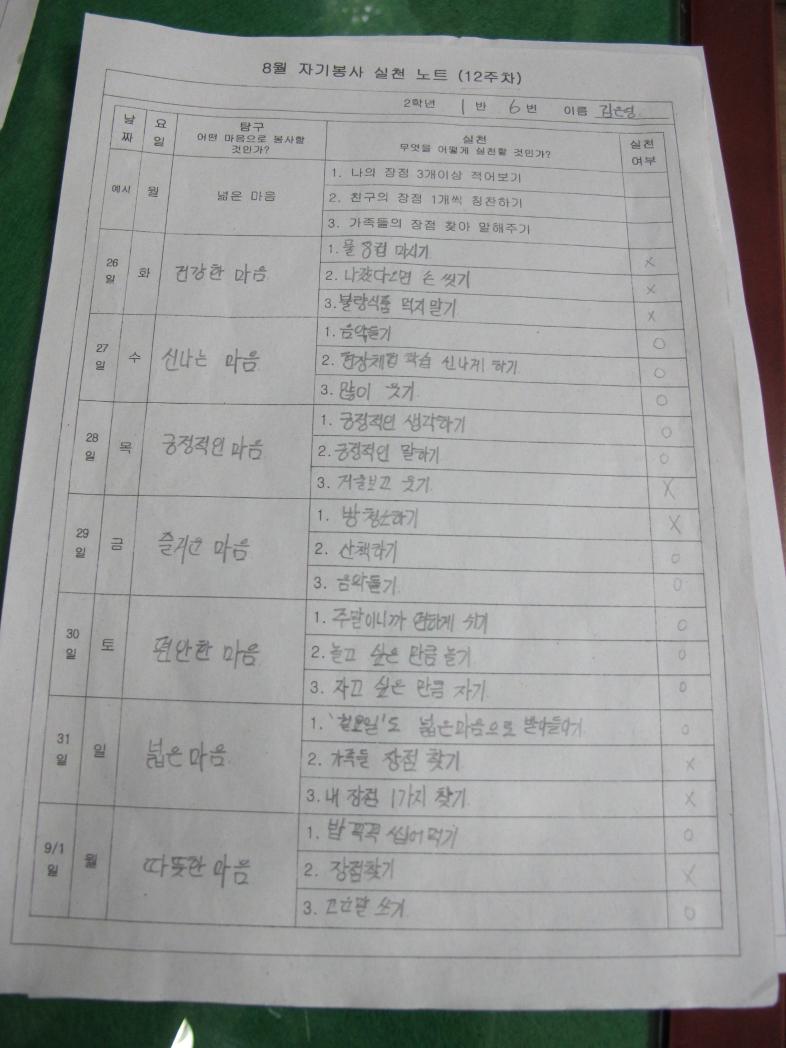 8월 자기봉사 실천 노트 (12주차)
2학년 1 반 6 번 이름 김은영
날짜 요일 탐구 어떤 마음으로 봉사할 것인가? 실천 무엇을 어떻게 실천할 것인가? 실천여부
예시 월 넓은 마음
1. 나의 장점 3개이상 적어보기
2. 친구의 장점 1개씩 칭찬하기
3. 가족들의 장점 찾아 말해주기
26일 화 건강한 마음
1. 물 8컵 마시기 X
2. 나갔다오면 손 씻기 X
3. 불량식품 먹지 말기 X
27일 수 신나는 마음
1. 음악듣기 O
2. 현장체험 학습 신나게 하기 O
3. 많이 웃기 O
28일 목 긍정적인 마음
1. 긍정적인 생각하기 O
2. 긍정적인 말하기 O
3. 거울보고 웃기 X
29일 금 즐거운 마음
1. 방 청소하기 X
2. 산책하기 O
3. 음악듣기 O
30일 토 편안한 마음
1. 주말이니까 편하게 쉬기 O
2. 놀고 싶은 만큼 놀기 O
3. 자고 싶은 만큼 자기 O
31일 일 넓은 마음
1. '월요일'도 넓은 마음으로 받아들이기 O
2. 가족들 장점 찾기 X
3. 내 장점 1가지 찾기 X
9/1일 월 따뜻한 마음
1. 밥 꼭꼭 씹어 먹기 O
2. 장점찾기 X
3. 고운말 쓰기 O